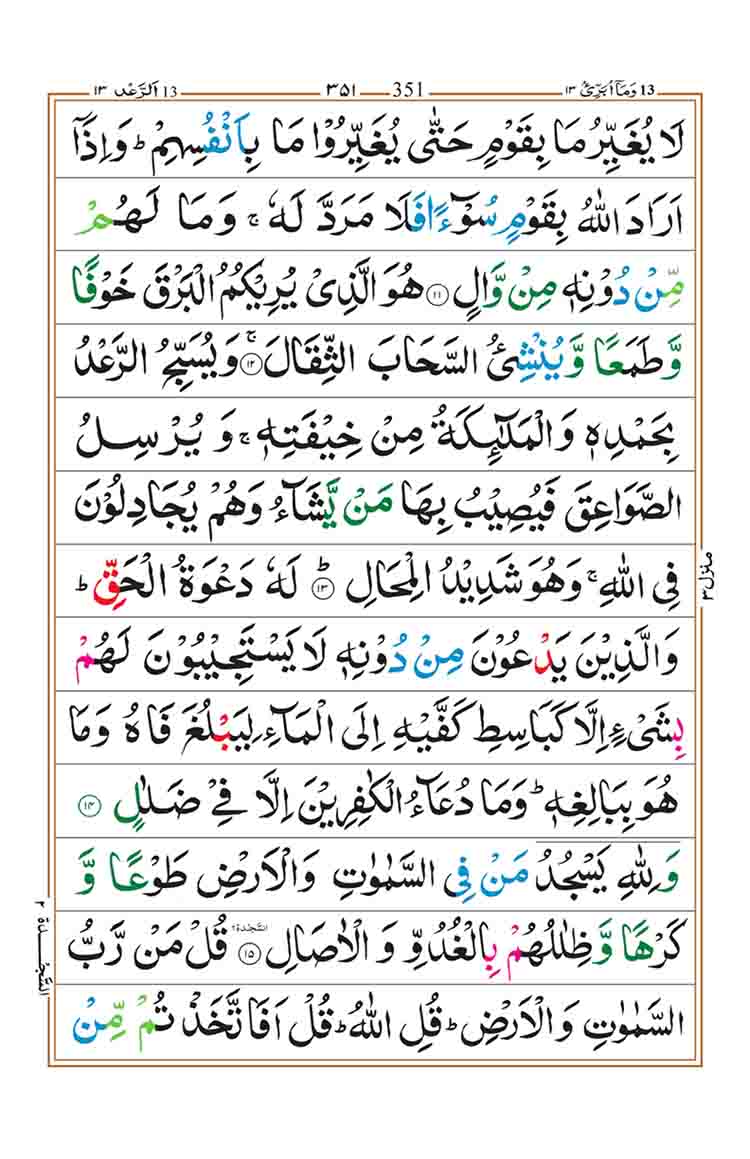 13 وَمَاۤ اُبَرِّئُ ١٣
351 ٣٥١
13 اَلرَّعْد ١٣
لَا يُغَيِّرُ مَا بِقَوْمٍ حَتّٰى يُغَيِّرُوْا مَا بِاَنْفُسِهِمْ ؕ وَاِذَاۤ
اَرَادَ اللّٰهُ بِقَوْمٍ سُوْٓءًا فَلَا مَرَدَّ لَهٗ ۚ وَمَا لَهُمْ
مِّنْ دُوْنِهٖ مِنْ وَّالٍ ۝١١ هُوَ الَّذِيْ يُرِيْكُمُ الْبَرْقَ خَوْفًا
وَّطَمَعًا وَّيُنْشِئُ السَّحَابَ الثِّقَالَ ۝١٢ۚ وَيُسَبِّحُ الرَّعْدُ
بِحَمْدِهٖ وَالْمَلٰٓئِكَةُ مِنْ خِيْفَتِهٖ ۚ وَيُرْسِلُ
الصَّوَاعِقَ فَيُصِيْبُ بِهَا مَنْ يَّشَآءُ وَهُمْ يُجَادِلُوْنَ
فِي اللّٰهِ ۚ وَهُوَ شَدِيْدُ الْمِحَالِ ۝١٣ؕ لَهٗ دَعْوَةُ الْحَقِّ ؕ
وَالَّذِيْنَ يَدْعُوْنَ مِنْ دُوْنِهٖ لَا يَسْتَجِيْبُوْنَ لَهُمْ
بِشَيْءٍ اِلَّا كَبَاسِطِ كَفَّيْهِ اِلَى الْمَآءِ لِيَبْلُغَ فَاهُ وَمَا
هُوَ بِبَالِغِهٖ ؕ وَمَا دُعَآءُ الْكٰفِرِيْنَ اِلَّا فِيْ ضَلٰلٍ ۝١٤
وَلِلّٰهِ يَسْجُدُ مَنْ فِي السَّمٰوٰتِ وَالْاَرْضِ طَوْعًا وَّ
كَرْهًا وَّظِلٰلُهُمْ بِالْغُدُوِّ وَالْاٰصَالِ ۝١٥ السَّجْدَة ٢ قُلْ مَنْ رَّبُّ
السَّمٰوٰتِ وَالْاَرْضِ ؕ قُلِ اللّٰهُ ؕ قُلْ اَفَاتَّخَذْتُمْ مِّنْ
منزل ٣
السَّجْدَة ٢